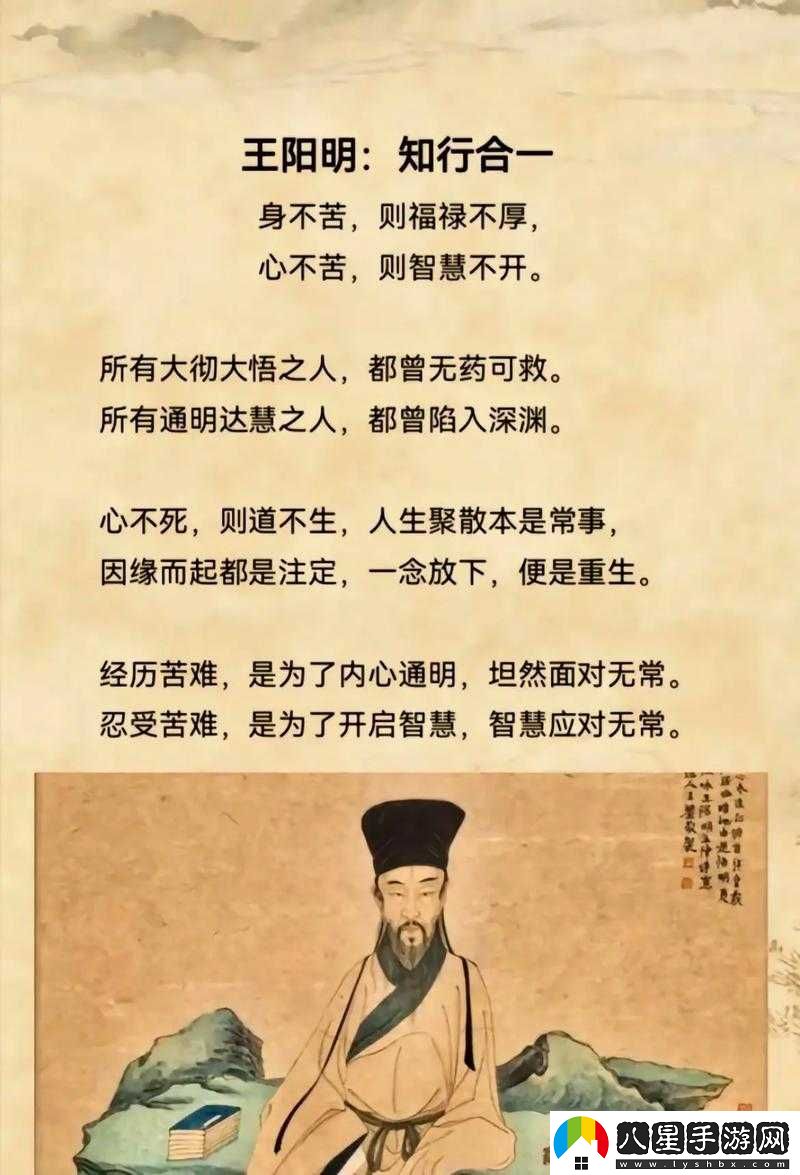 王阳明：知行合一
身不苦，则福禄不厚，
心不苦，则智慧不开。
所有大彻大悟之人，都曾无药可救。
所有通明达慧之人，都曾陷入深渊。
心不死，则道不生，人生聚散本是常事，
因缘而起都是注定，一念放下，便是重生。
经历苦难，是为了内心通明，坦然面对无常。
忍受苦难，是为了开启智慧，智慧应对无常。
八星手游网
www.lyshbx.com